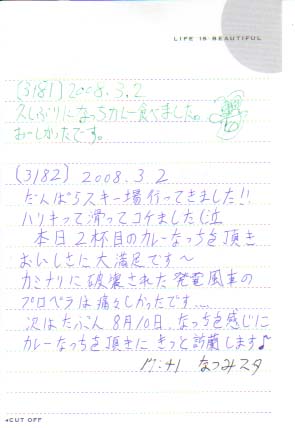 LIFE IS BEAUTIFUL
(3181) 2008.3.2
久しぶりになっちカレー食べました。
おいしかったです。
(3182) 2008.3.2
だんパラスキー場行ってきました!!
ハリキって滑ってコケました(泣
本日2杯目のカレーなっちを頂き
おいしさに大満足です〜
カミナリに破壊された発電風車の
プロペラは痛々しかったです...
次はたぶん8月10日、なっちを感じに
カレーなっちを頂きにきっと訪蘭します♪
なつみスタ
◂CUT OFF